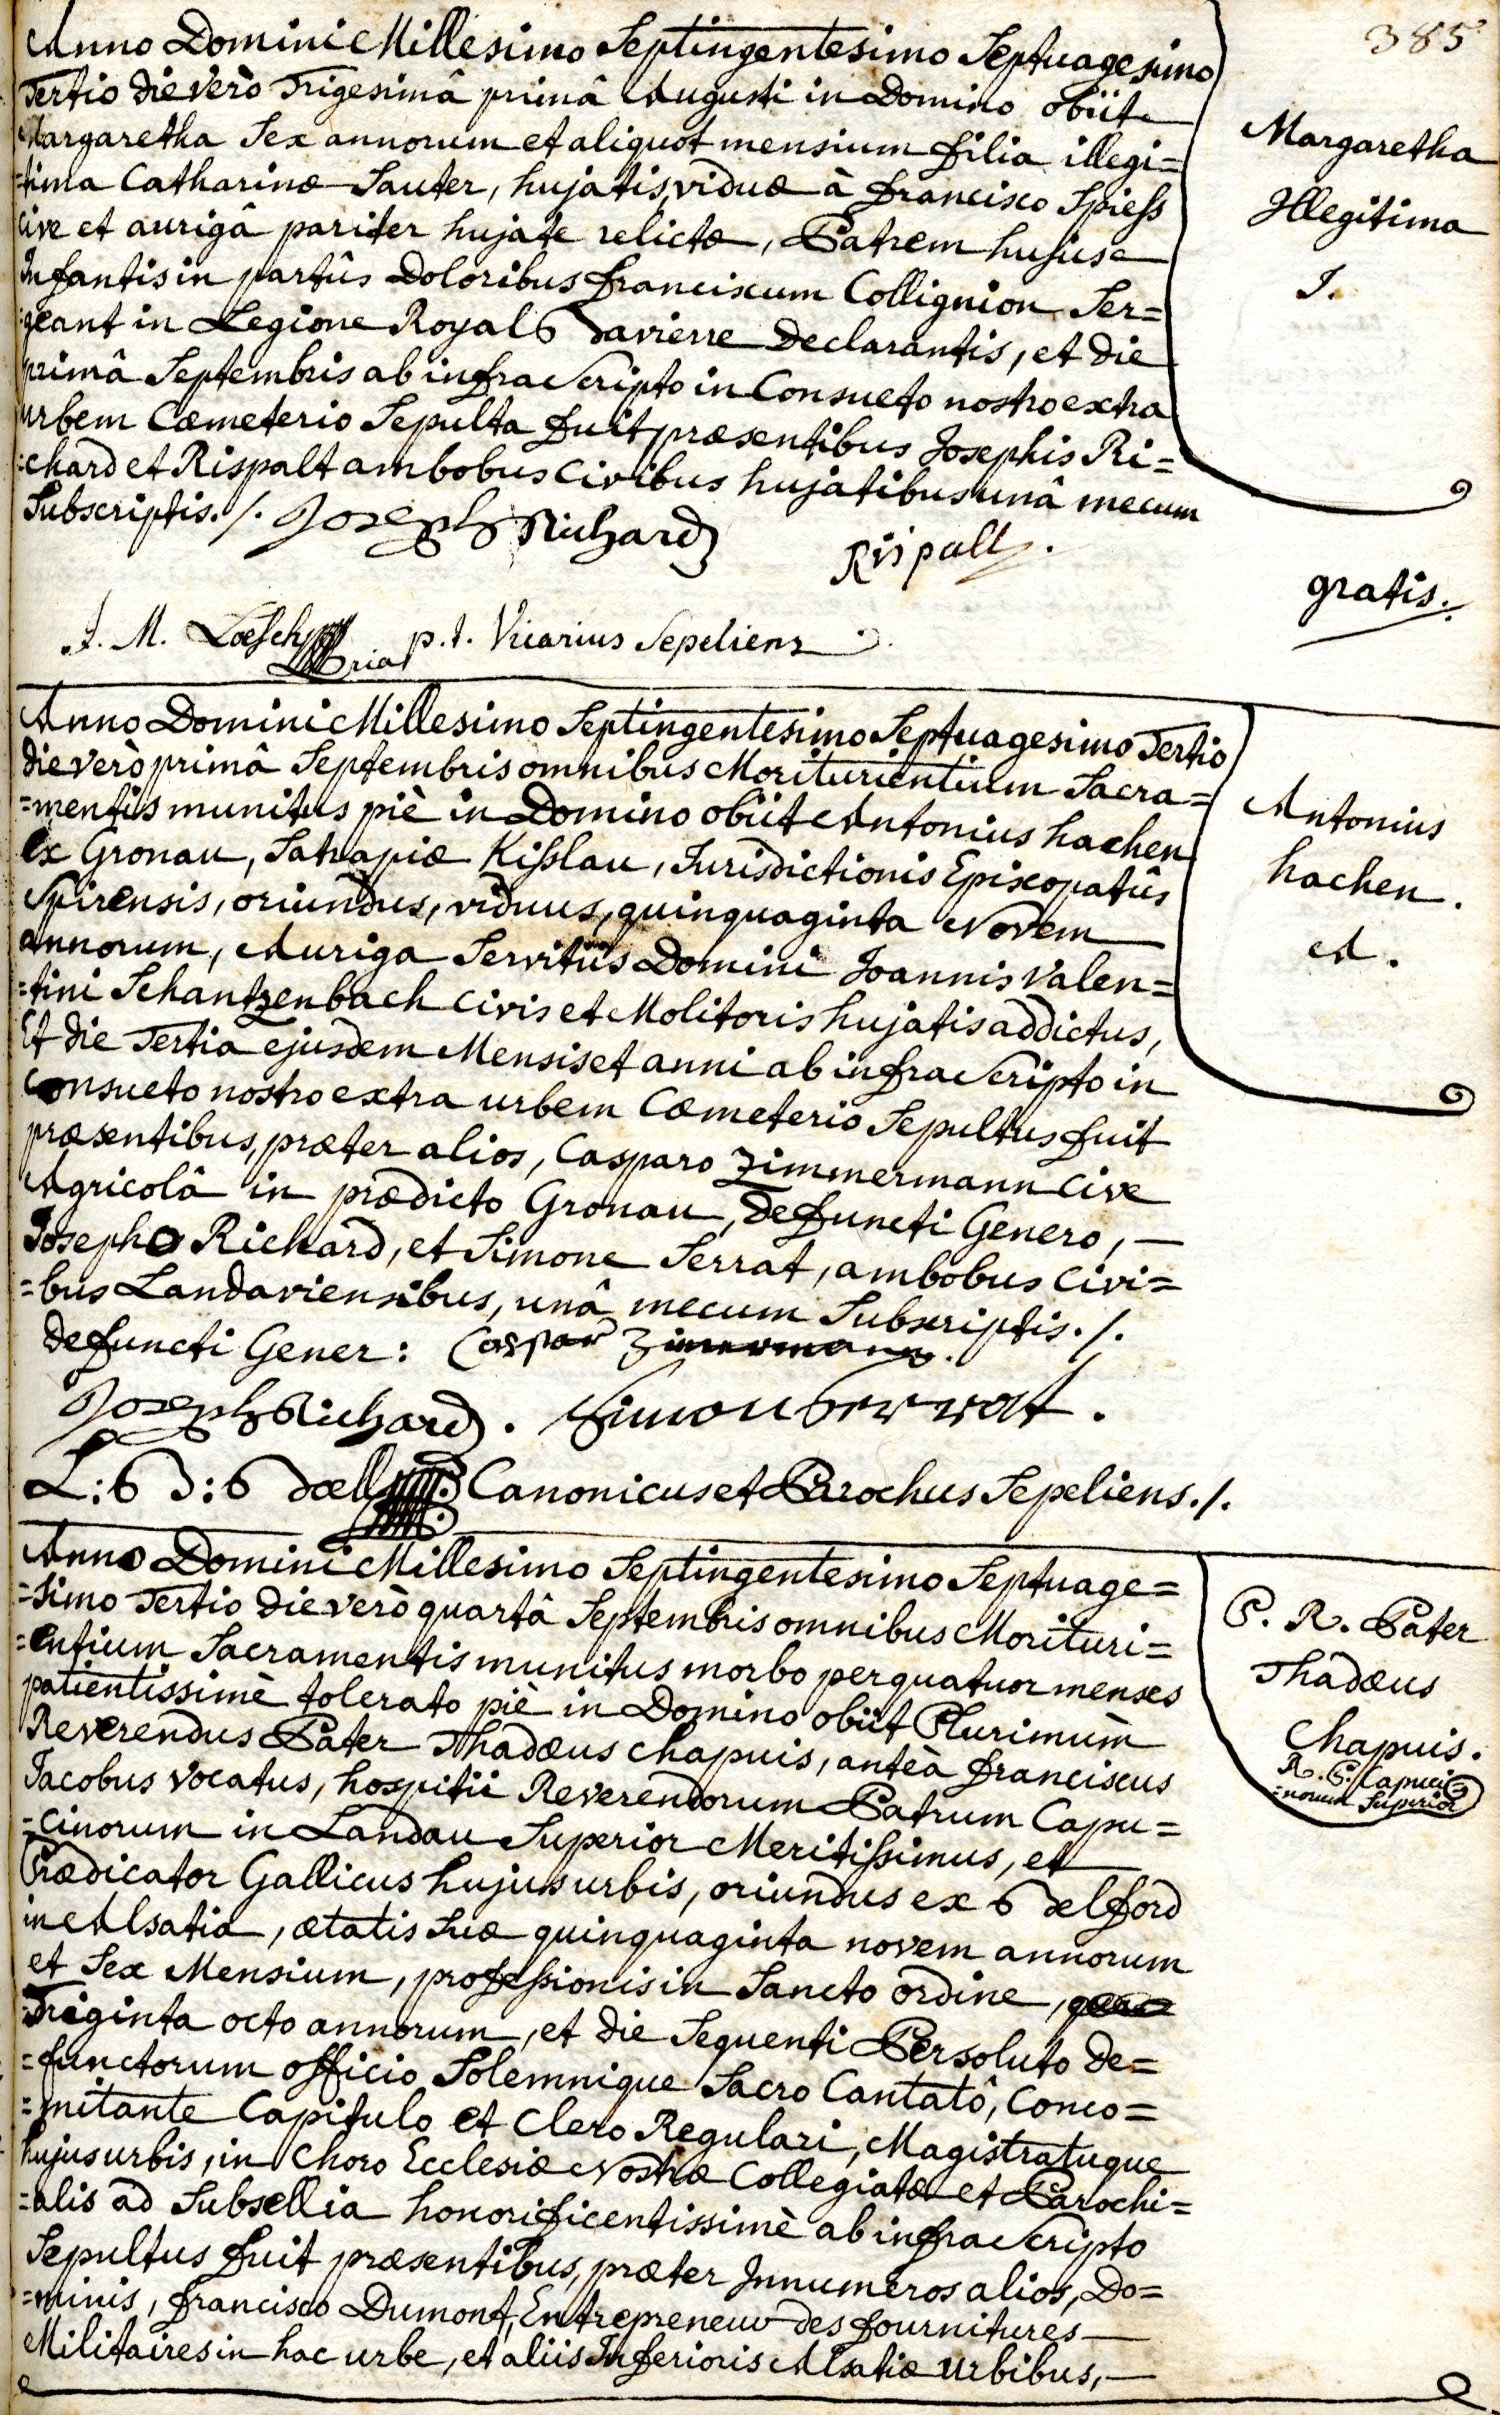 385
Anno Domini Millesimo Septingentesimo Septuagesimo
Tertio die verò Trigesimâ primâ Augusti in Domino obiit
Margaretha Sex annorum et aliquot mensium filia illegi=
=tima Catharinæ Sauter, hujatis, viduæ à francisco Spiess
Cive et aurigâ pariter hujate relictæ, Patrem hujus
Infantis in partûs Doloribus franciscum Collignion Ser=
=geant in Legione Royal Bavierre Declarantis, et die
primâ Septembris ab infra Scripto in Consueto nostro extra
urbem Cœmeterio Sepulta fuit præsentibus Josephis Ri=
=chard et Rispalt ambobus Civibus hujatibus unâ mecum
Subscriptis./.
Joseph Richard
Rispall.
J. M. Loesch p.t. Vicarius Sepeliens
Margaretha
Illegitima
I.
gratis.
Anno Domini Millesimo Septingentesimo Septuagesimo Tertio
die verò primâ Septembris omnibus Moriturientium Sacra=
=mentis munitus piè in Domino obiit Antonius hachen
ex Gronau, Satrapiæ Kisslau, Jurisdictionis Episcopatûs
Spirensis, oriundus, viduus, quinquaginta Novem
annorum, Auriga Servitiis Domini Joannis Valen=
=tini Schantzenbach Civis et Molitoris hujatis addictus,
Et die Tertia ejusdem Mensis et anni ab infra Scripto in
Consueto nostro extra urbem Cœmeterio Sepultus fuit
præsentibus, præter alios, Casparo Zimmermann Cive
Agricolâ in prædicto Gronau, Defuncti Genero, —
Josepho Richard, et Simone Serrat, ambobus Civi=
=bus Landaviensibus, unâ mecum Subscriptis./.
Defuncti Gener: Caspar Zimermann.
Joseph Richard. Simon Serrat.
Canonicus et Parochus Sepeliens./.
Antonius
hachen.
A.
Anno Domini Millesimo Septingentesimo Septuage=
=simo Tertio die verò quartâ Septembris omnibus Morituri=
=entium Sacramentis munitus morbo per quatuor menses
patientissimè tolerato piè in Domino obiit Plurimùm
Reverendus Pater Thadæus Chapuis, anteà franciscus
Jacobus vocatus, hospitii Reverendorum Patrum Capu=
=cinorum in Landau Superior Meritissimus, et
Prædicator Gallicus hujus urbis, oriundus ex Belford
in Alsatia, ætatis suæ quinquaginta novem annorum
et Sex Mensium, professionis in Sancto ordine,
Triginta octo annorum, et die Sequenti Persoluto de=
=functorum officio Solemnique Sacro Cantatô, Como=
=mitante Capitulo et Clero Regulari, Magistratuque
hujus urbis, in Choro Ecclesiæ Nostræ Collegiatæ et Parochi=
=alis ad Subsellia honorificentissimè ab infra Scripto
Sepultus fuit præsentibus, præter Innumeros alios, Do=
=minis, francisco Dumont, Entrepreneur des fournitures —
Militaires in hac urbe, et aliis Inferioris Alsatiæ Urbibus, —
P. R. Pater
Thadæus
Chapuis.
R. P. Capuci=
=norum Superior